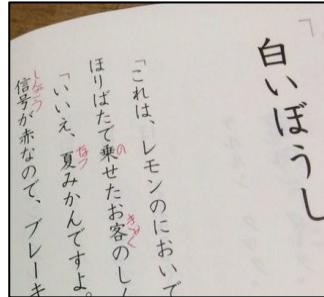 白いぼうし
「これは、レモンのにおいで
ほりばたで乗せたお客のしん
「いいえ、夏みかんですよ。
信号が赤なので、ブレーキ
の
きゃく
なつ
しんごう